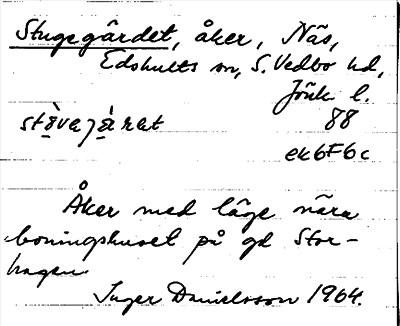 Stugegärdet, åker, Näs,
Edshults sn, S. Vedbo hd,
Jönk l.
88
ek6F6c
Åker med läge nära
boningshuset på gd Stor-
hagen
Inger Danielsson 1964.